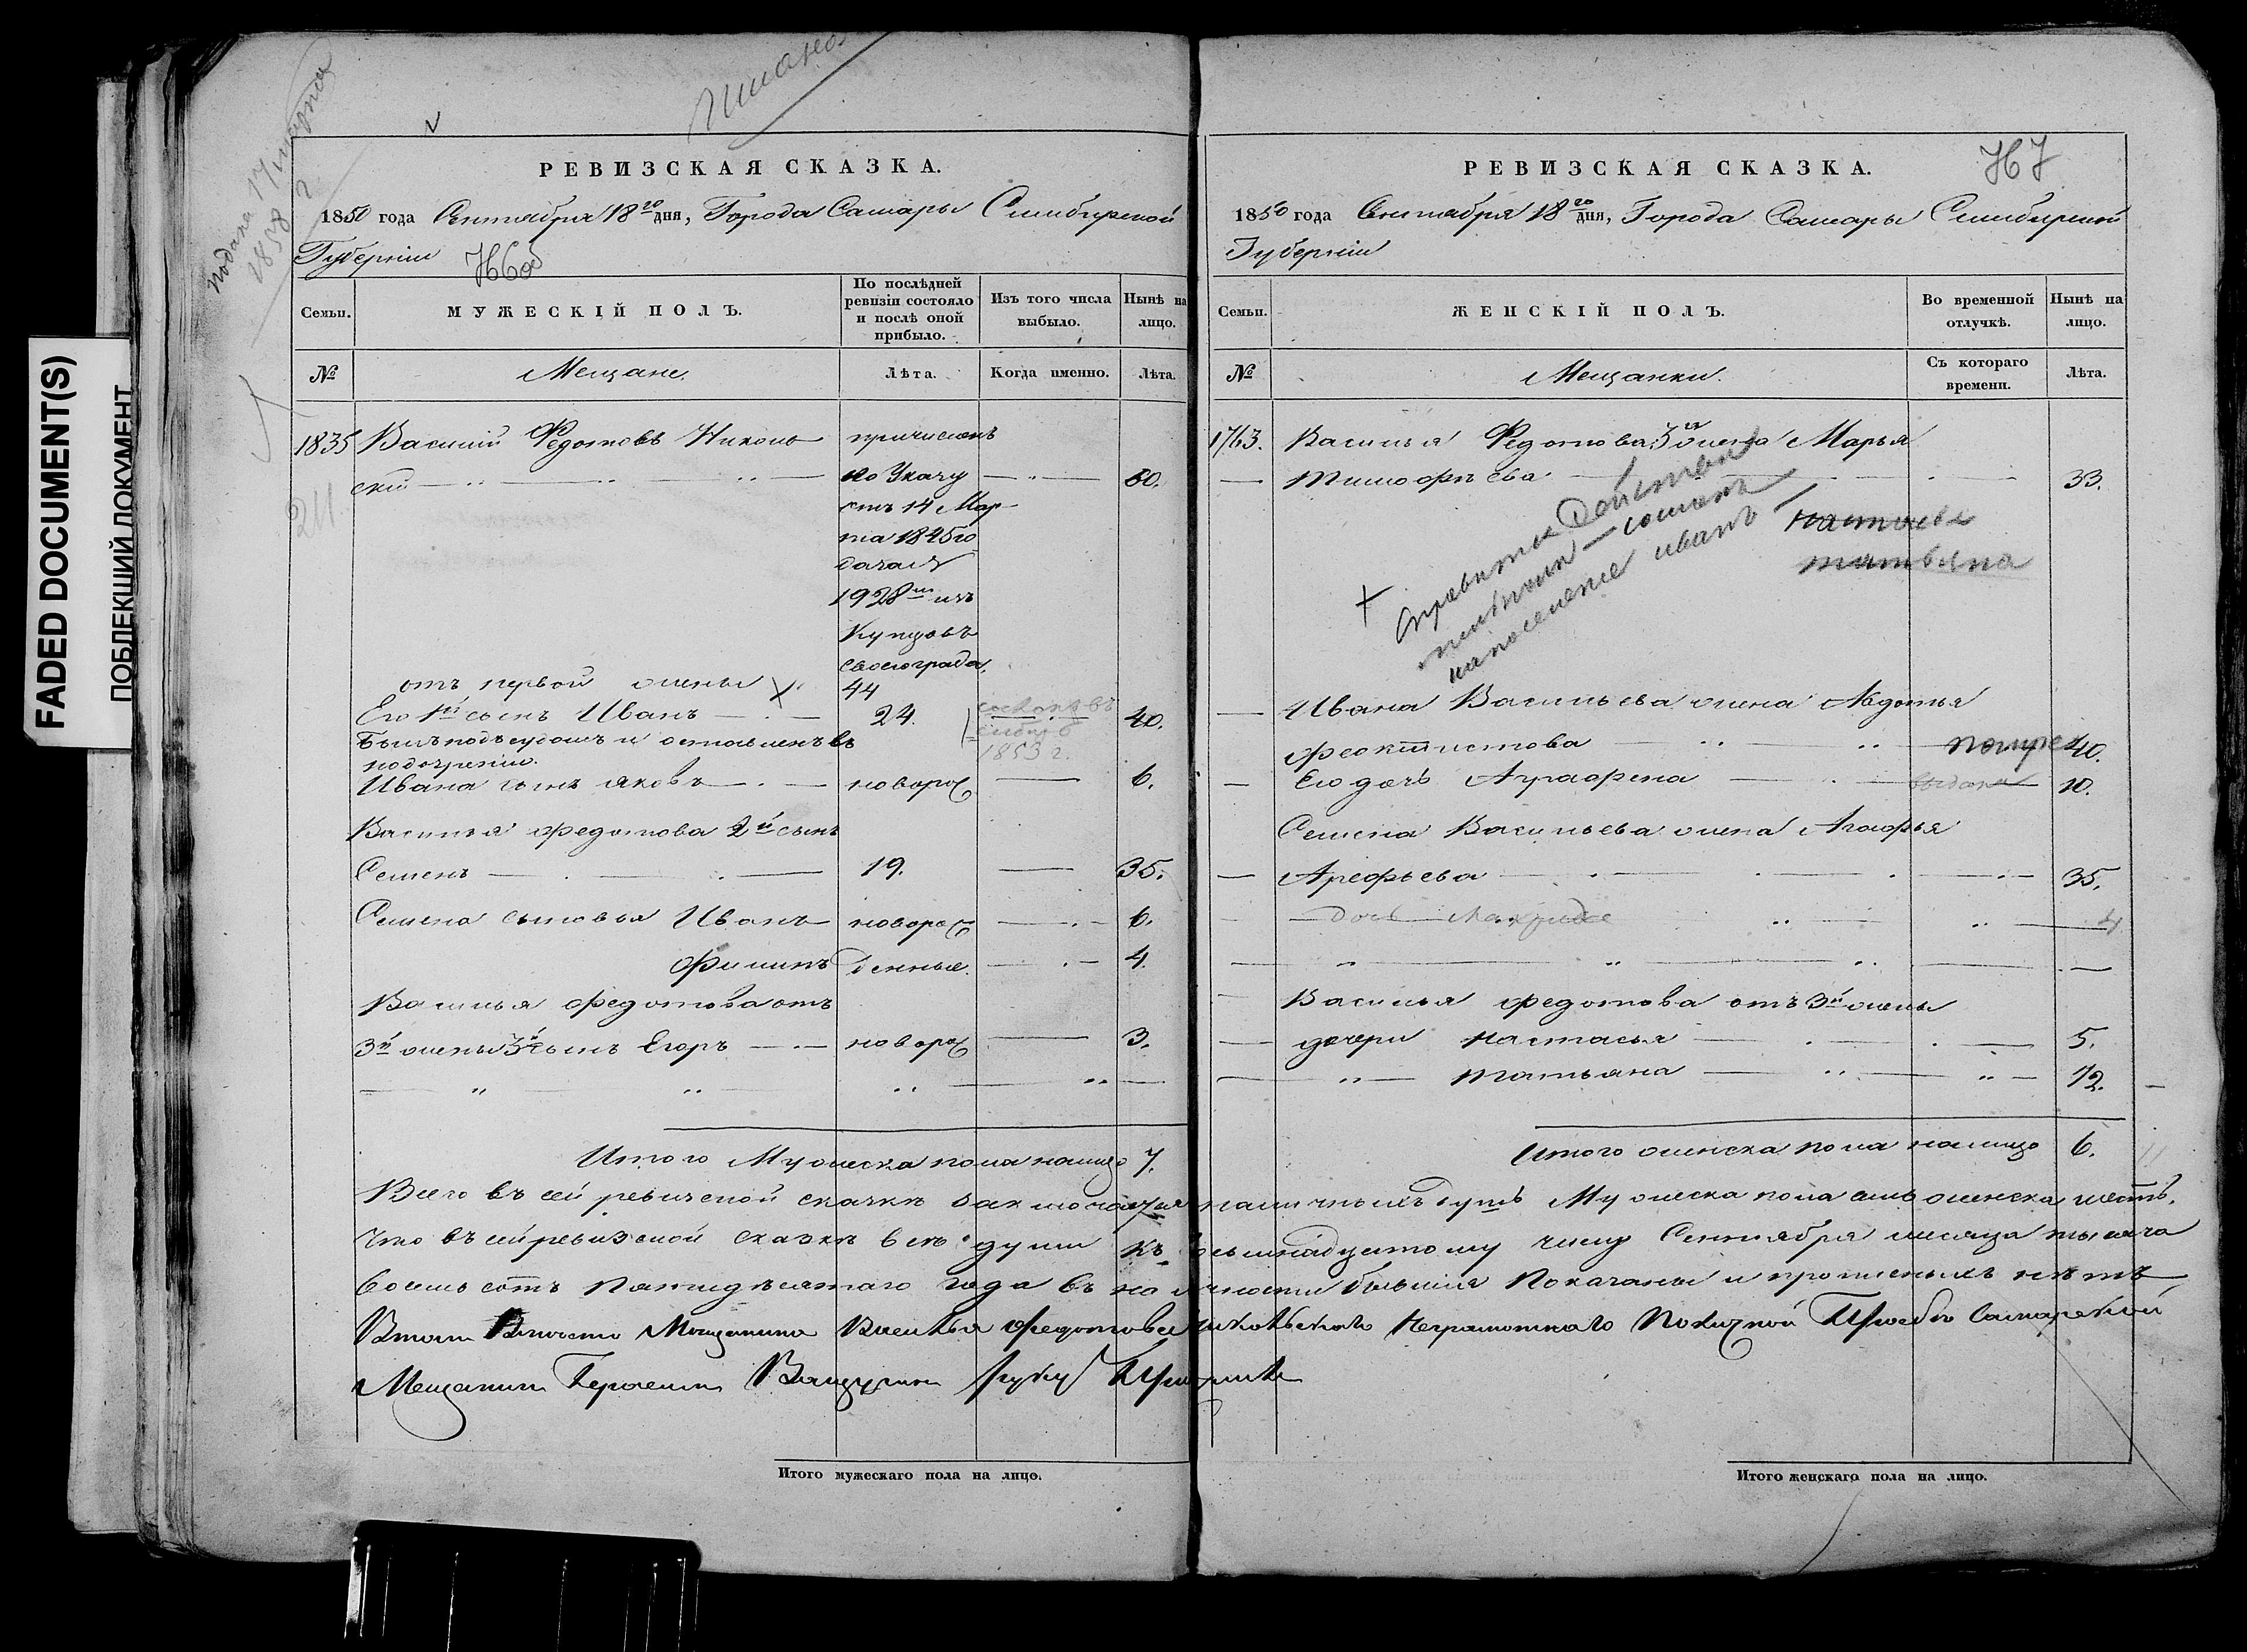 FADED DOCUMENT(S)
ПОБЛЕКШИЙ ДОКУМЕНТ
подана 17 марта
1858 г
РЕВИЗСКАЯ СКАЗКА.
1850 года Сентября 18го дня, Города Самары Симбирской
Губернии
766об
Семьи.
МУЖЕСКІЙ ПОЛЪ.
По послѣдней
ревизіи состояло
и послѣ оной
прибыло.
Изъ того числа
выбыло.
Нынѣ на
лицо.
№
Мещане.
Лѣта.
Когда именно.
Лѣта.
1835 Василий Федотовъ Николь причисленъ
ский по Указу 60.
211
отъ 14 Мар
та 1845го
1928м изъ
Купцовъ
своего града.
отъ первой жены 44
Его 1й сынъ Иванъ 24. 40.
Былъ подъ судомъ и оставленъ въ
1853 г.
подозрении.
Ивана сынъ Яковъ новорож 6.
Василья Федотова 2й сынъ
Семенъ 19. 35.
Семена сыновья Иванъ новорож 6.
Филипъ денные. 4.
Василья Федотова отъ
3й жены 3й сынъ Егоръ новорож 3.
Итого Мужеска пола налицо 7.
РЕВИЗСКАЯ СКАЗКА.
767
1850 года Сентября 18го дня, Города Самары Симбирской
Губернии
Семьи.
ЖЕНСКІЙ ПОЛЪ.
Во временной
отлучкѣ.
Нынѣ на
лицо.
№
Мещанки.
Съ котораго
времени.
Лѣта.
1763. Василья Федотова 3я жена Марья
Тимофѣева 33.
настасья
татьяна
на поселение иванъ
Ивана Васильева жена Авдотья
Феоктистова 40.
Его дочь Аграфена выдана 10.
Семена Васильева жена Агафья
Арефьева 35.
дочь 4
Василья Федотова отъ 3й жены
дочери Настасья 5.
Татьяна 1/2.
Итого женска пола налицо 6.
Всего въ сей ревизской сказкѣ заключается наличныхъ душъ Мужеска пола семь женска шесть.
Что въ сей ревизской сказкѣ всѣ души къ восьмнадцатому числу Сентября месяца тысяча
восемь сотъ Пятидѣсятаго года въ наличности бывшия Показаны и прописныхъ нѣтъ
Въ томъ Вместо Мещанина Василья Федотова Никольскаго Неграмотнаго По личной Прозбе Самарской
Мещанин Герасим руку Приложил
Итого мужескаго пола на лицо.
Итого женскаго пола на лицо.